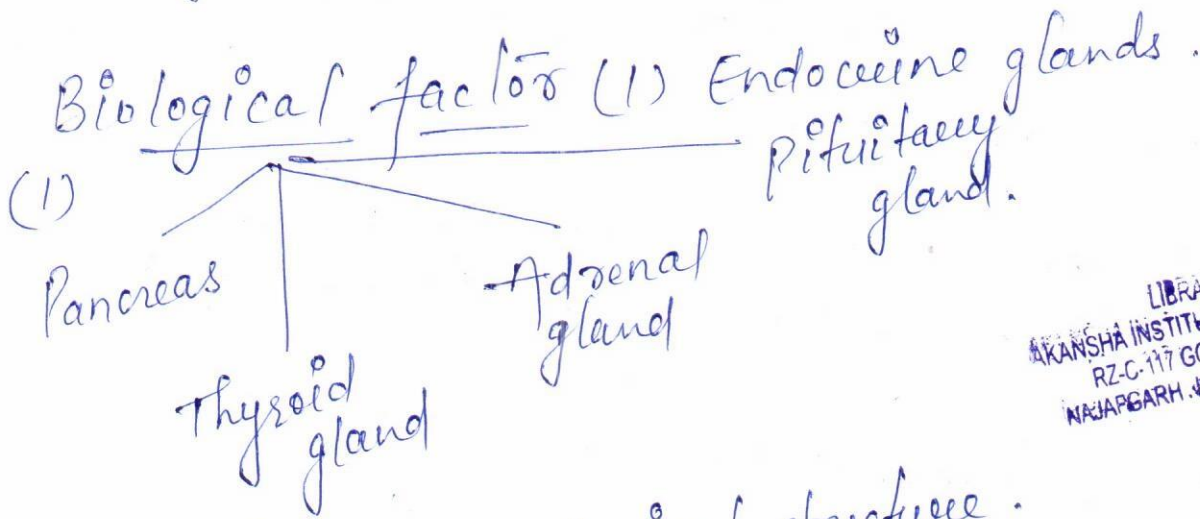 Biological factor (1) Endocrine glands.
(1)
Pituitary
gland.
Pancreas
Adrenal
gland
Thyroid
gland
LIBRA
AKANSHA INSTITU
RZ-C-117 GO
NAJAFGARH
structure.